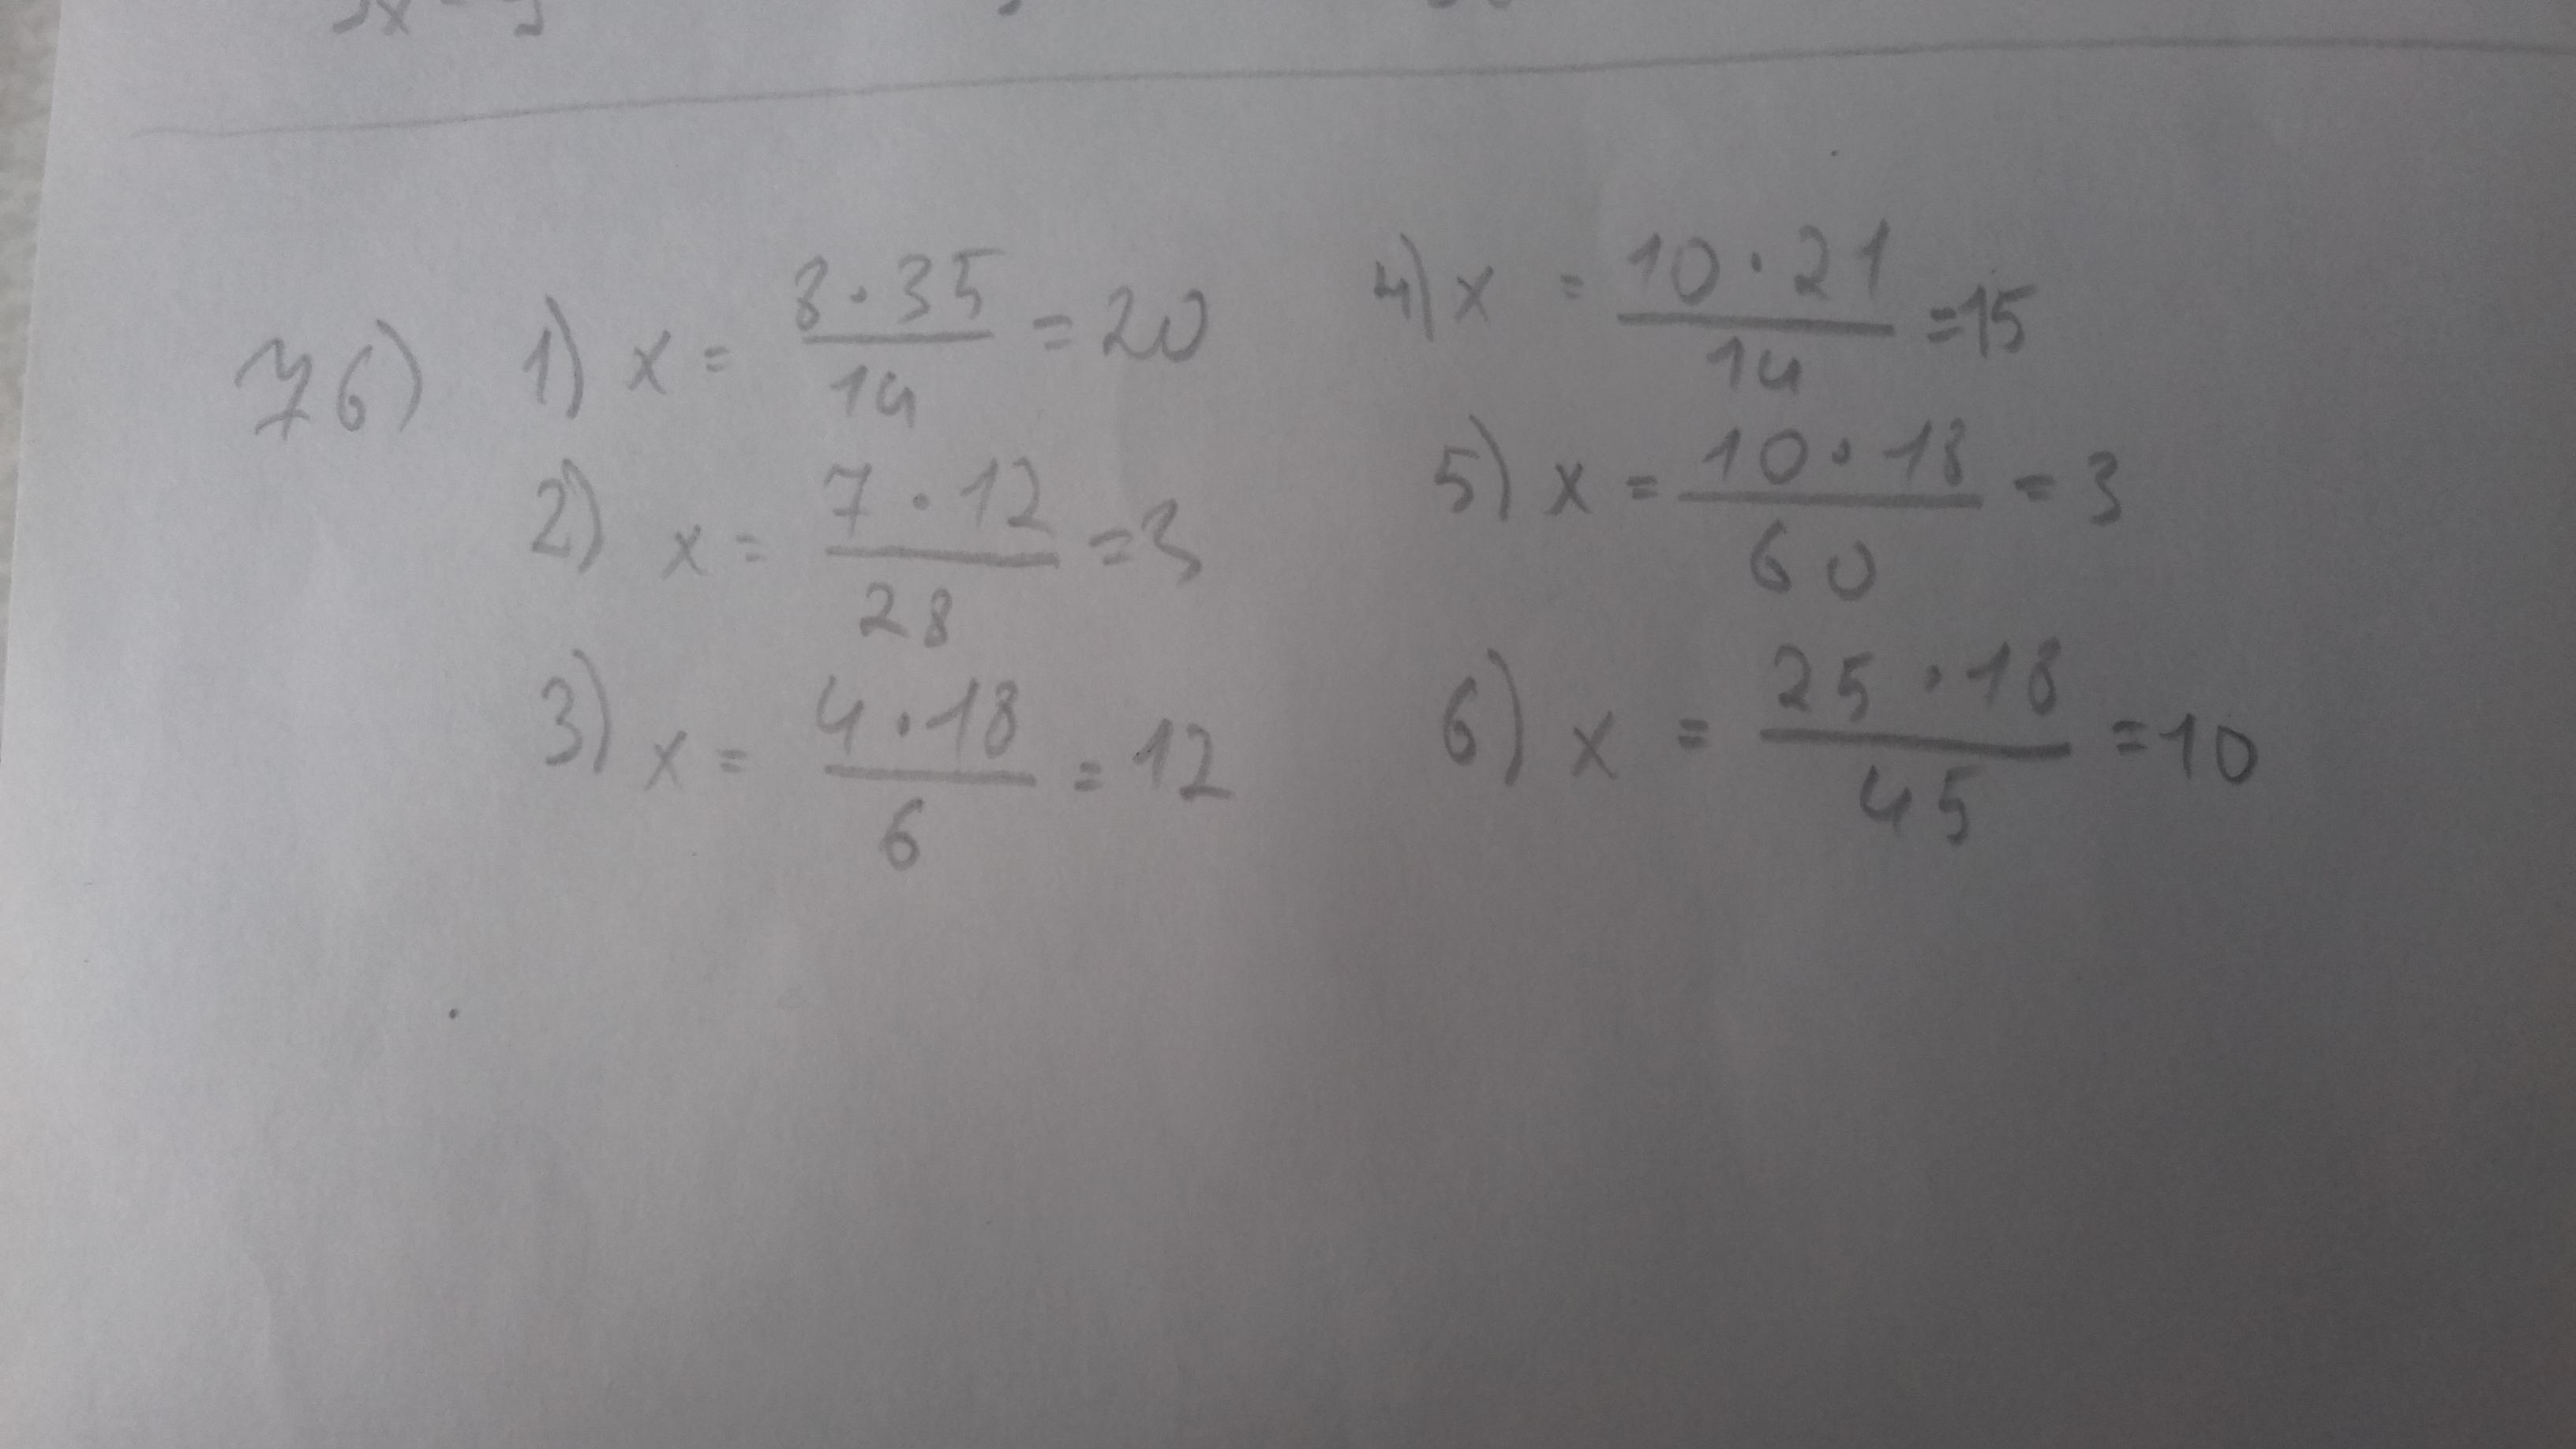 76) 1) x = 8·35/14 = 20
2) x = 7·12/28 = 3
3) x = 4·18/6 = 12
4) x = 10·21/14 = 15
5) x = 10·18/60 = 3
6) x = 25·18/45 = 10